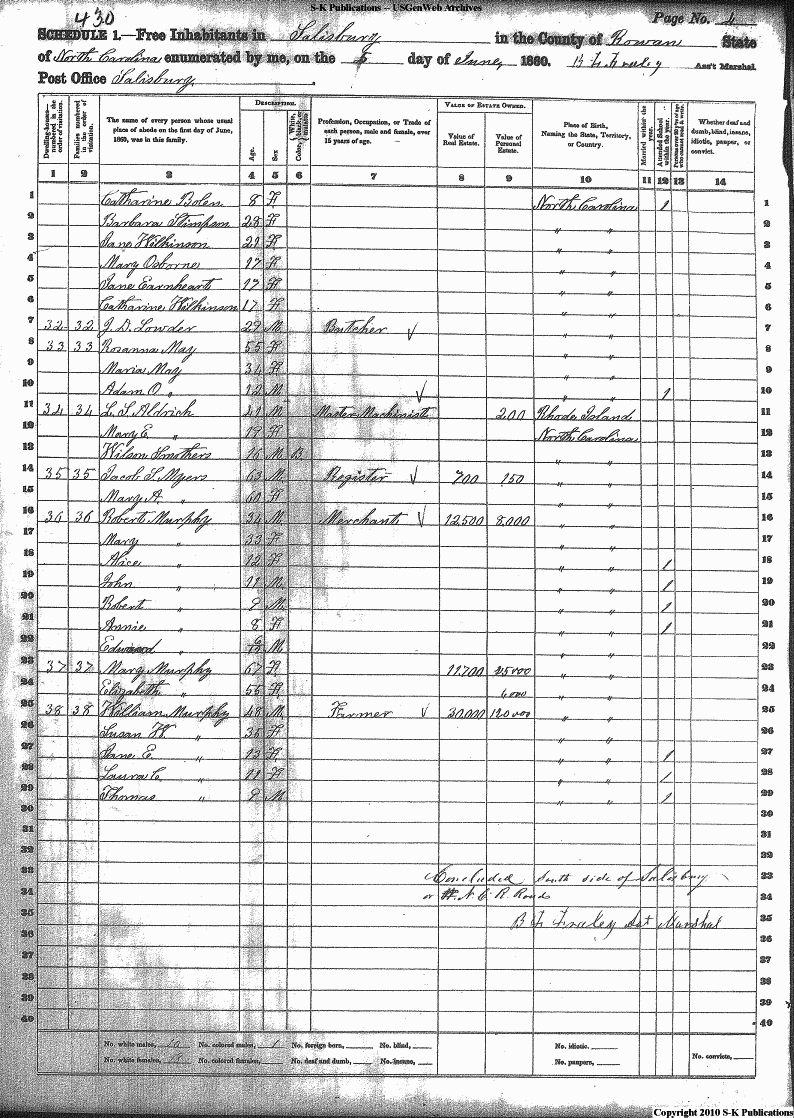 S-K Publications -- USGenWeb Archives
430
Page No. 4
SCHEDULE 1.—Free Inhabitants in Salisbury in the County of Rowan State
of North Carolina enumerated by me, on the day of June, 1860. B. F. Fraley Ass't Marshal.
Post Office Salisbury.
Dwelling-houses—numbered in the order of visitation.
Families numbered in the order of visitation.
The name of every person whose usual place of abode on the first day of June, 1860, was in this family.
DESCRIPTION.
Age.
Sex
Color, White, black, or mulatto
Profession, Occupation, or Trade of each person, male and female, over 15 years of age.
VALUE OF ESTATE OWNED.
Value of Real Estate.
Value of Personal Estate.
Place of Birth, Naming the State, Territory, or Country.
Married within the year.
Attended School within the year.
Persons over 20 y'rs of age who cannot read & write.
Whether deaf and dumb, blind, insane, idiotic, pauper, or convict.
1 2 3 4 5 6 7 8 9 10 11 12 13 14
1 Catharine Bolen 8 F North Carolina 1 1
2 Barbara Stimpson 28 F " " 2
3 Jane Wilkinson 21 F " " 3
4 Mary Osborne 17 F " " 4
5 Jane Earnheart 17 F " " 5
6 Catharine Wilkinson 17 F " " 6
7 32 32 J. D. Lowder 29 M Butcher " " 7
8 33 33 Rosanna May 55 F " " 8
9 Maria May 34 F " " 9
10 Adam O. " 12 M " " 1 10
11 34 34 L. S. Aldrich 41 M Master Machinist 200 Rhode Island 11
12 Mary E. " 19 F North Carolina 12
13 Wilson Smothers 16 M B " " 13
14 35 35 Jacob S. Myers 63 M Register 700 150 " " 14
15 Mary A. " 60 F " " 15
16 36 36 Robert Murphy 34 M Merchant 12,500 8,000 " " 16
17 Mary " 33 F " " 17
18 Alice " 12 F " " 1 18
19 John " 11 M " " 1 19
20 Robert " 9 M " " 1 20
21 Annie " 8 F " " 1 21
22 Edward " 6/12 M " " 22
23 37 37 Mary Murphy 67 F 11,700 25000 " " 23
24 Elizabeth " 55 F 6000 " " 24
25 38 38 William Murphy 48 M Farmer 30,000 120000 " " 25
26 Susan W. " 36 F " " 26
27 Jane E. " 13 F " " 1 27
28 Laura C. " 11 F " " 1 28
29 Thomas " 9 M " " 1 29
30 30
31 31
32 32
33 Concluded South side of Salisbury 33
34 or W. N. C. R. Roads 34
35 B F Fraley Ast Marshal 35
36 36
37 37
38 38
39 39
40 40
No. white males, 10 No. colored males, 1 No. foreign born, No. blind, No. idiotic,
No. white females, No. colored females, No. deaf and dumb, No. insane, No. paupers, No. convicts,
Copyright 2010 S-K Publications